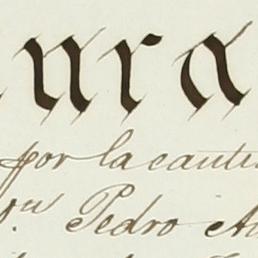 ura
por la canti
on Pedro A